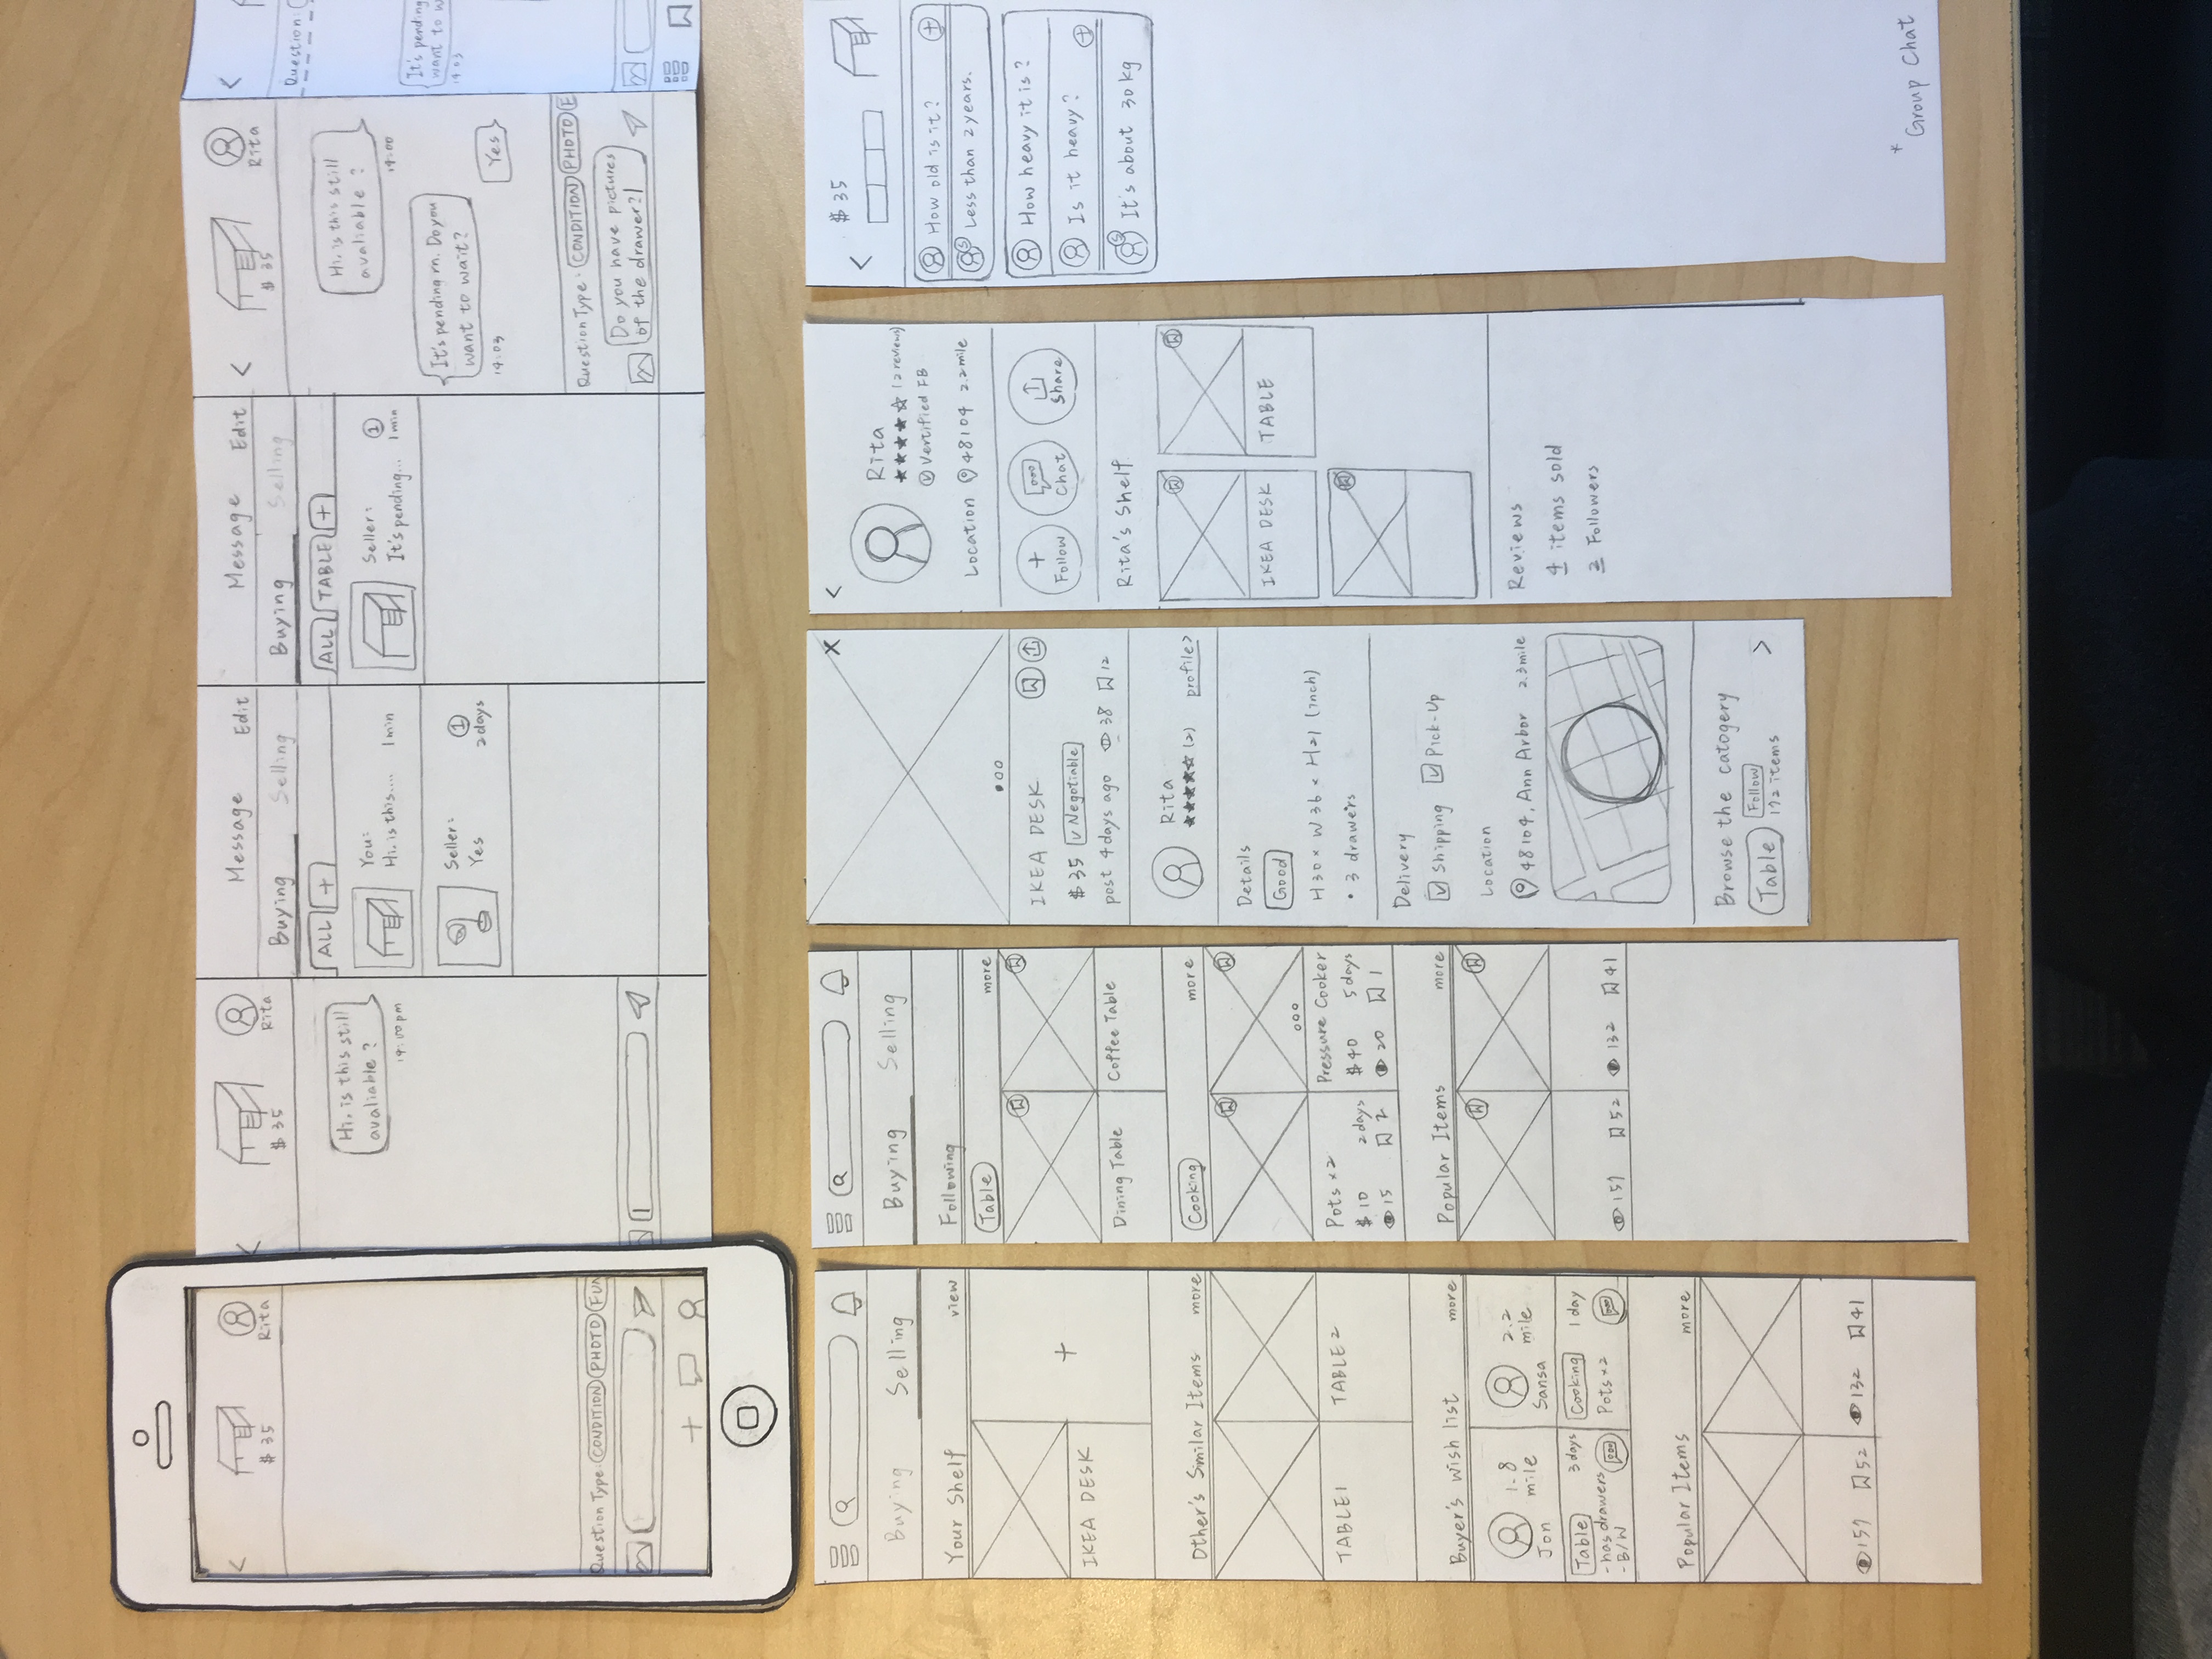 $ 35
Rita
Question Type: CONDITION PHOTO FUN
$ 35
Rita
Hi, is this still
avaliable ?
14:00pm
Message Edit
Buying Selling
ALL +
You:
Hi, is this.... 1min
Seller: 1
Yes 2days
Message Edit
Buying Selling
ALL TABLE +
Seller: 1
It's pending... 1min
$ 35
Rita
Hi, is this still
avaliable ?
14:00
It's pending rn. Do you
want to wait?
14:03
Yes
Question Type: CONDITION PHOTO F
Do you have pictures
of the drawer?
Question:
It's pending
want to w
14:03
Buying Selling
Your Shelf view
IKEA DESK
+
Other's Similar Items more
TABLE1 TABLE2
Buyer's wish list more
Jon 1.8 mile
Sansa 2.2 mile
Table 3days
-has drawers
-B/W
Cooking 1day
Pots×2
Popular Items more
157 52 132 41
Buying Selling
Following
Table more
Dining Table Coffee Table
Cooking more
Pots×2
$10 2days
15 2
Pressure Cooker
$40 5days
20 1
Popular Items more
157 52 132 41
X
IKEA DESK
$35 v Negotiable
post 4days ago 38 12
Rita
★★★★☆ (2) profile>
Details
Good
H30 × W36 × H21 (inch)
• 3 drawers
Delivery
Shipping Pick-Up
Location
48104, Ann Arbor 2.3mile
Browse the catogery
Table Follow
172 items >
<
Rita
★★★★☆ (2 reviews)
Vertified FB
Location 48104 2.2mile
+
Follow Chat Share
Rita's Shelf
IKEA DESK TABLE
Reviews
4 items sold
2 Followers
< $35
How old is it? +
S Less than 2years.
How heavy it is?
Is it heavy? +
S It's about 30kg
*
Group Chat